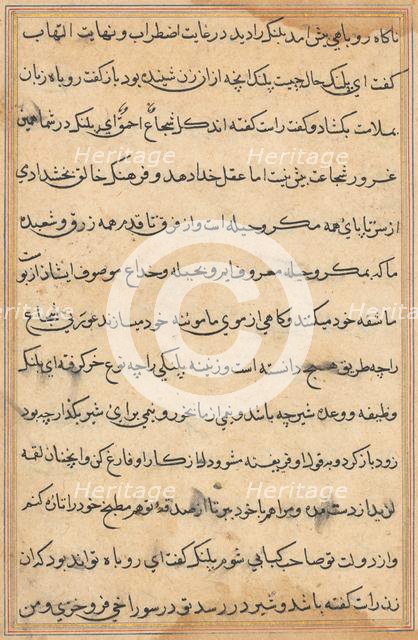 ناکاه روباهی پیش امد پلنک را دید در غایت اضطراب و نهایت التهاب
کفت ای پلنک حال چیست پلنک انچه از ان زن شنیده بود باز کفت روباه زبان
بملامت بکشاد و کفت راست کفته اند کل شجاع احمق ای پلنک در شما همین
غرور شجاعت بیش نیست اما عقل خدا دهد و فرهنک خالق بخشد ادمی
از سر تا پای همه مکر و حیله است و از فرق تا قدم همه زرق و شعبده
ما که بمکر و حیله معروفایم و بحیله و خداع موصوف ایشان از پوست
ما شقه خود میکنند و کاهی از موی ما موئینه خود میسازند عورتی شجاع
را چه طریق دانسته است و زنینه پلنکی را چه نوع خر کرفه ای پلنک
وظیفه و وعده شیر چه باشد و نیمی از ما بخور و نیمی برای شیر بکذار چه بود
زود باز کرد و بقول او فریفته مشو و دل از کار او فارغ کن و اینچنان لقمه
لذیذ از دست مده و مرا همراه خود ببر تا از صدقه تو هم مطبخ خود را تازه کنم
و از دولت تو صاحب کبابی شوم پلنک کفت ای روباه تواند بود که ان
زن راست کفته باشد و شیر در رسد تو در سوراخی فرو خزی و من